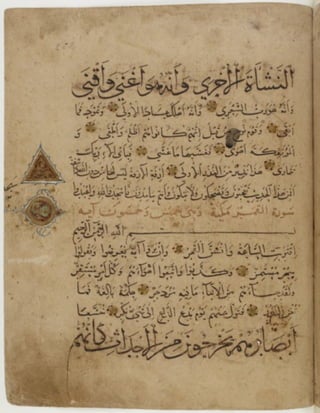 النشأة الأخرى وأنه هو أغنى وأقنى
وأنه هو رب الشعرى وأنه أهلك عادا الأولى وثمود فما
أبقى وقوم نوح من قبل إنهم كانوا هم أظلم وأطغى و
المؤتفكة أهوى فغشيها ما غشى فبأي آلاء ربك
تتمارى هذا نذير من النذر الأولى أزفت الآزفة ليس لها من دون الله كاشفة
أفمن هذا الحديث تعجبون وتضحكون ولا تبكون وأنتم سامدون فاسجدوا لله واعبدوا
سورة القمر مكية وهي خمس وخمسون آية
بسم الله الرحمن الرحيم
اقتربت الساعة وانشق القمر وإن يروا آية يعرضوا ويقولوا
سحر مستمر وكذبوا واتبعوا أهواءهم وكل أمر مستقر
ولقد جاءهم من الأنباء ما فيه مزدجر حكمة بالغة فما
تغن النذر فتول عنهم يوم يدع الداع إلى شيء نكر خشعا
أبصارهم يخرجون من الأجداث كأنهم